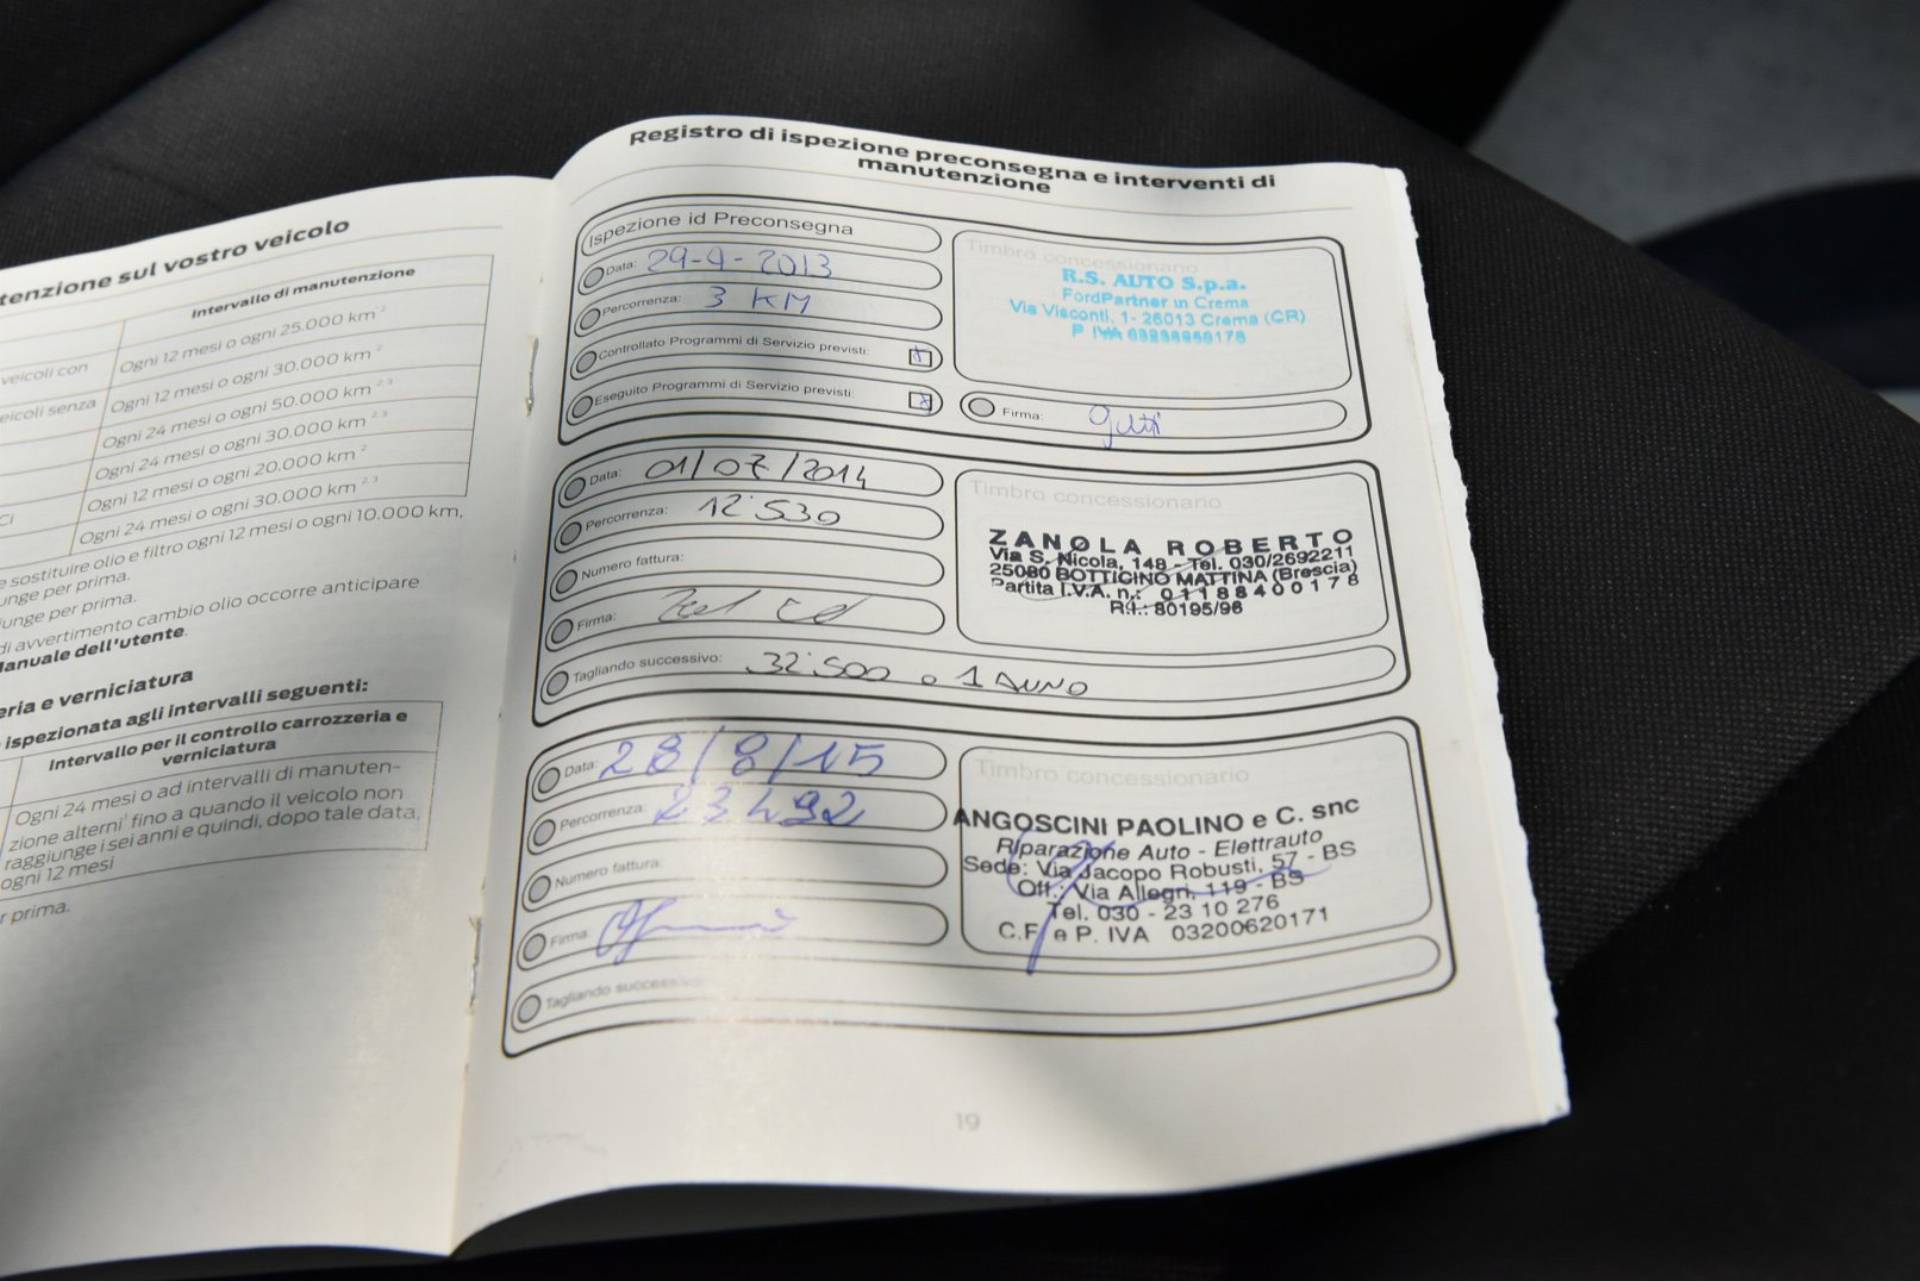 tenzione sul vostro veicolo
Intervallo di manutenzione
Ogni 12 mesi o ogni 25.000 km ²
veicoli con
Ogni 12 mesi o ogni 30.000 km ²
eicoli senza
Ogni 24 mesi o ogni 50.000 km ² ³
Ogni 24 mesi o ogni 30.000 km ² ³
Ogni 12 mesi o ogni 20.000 km ²
CI
Ogni 24 mesi o ogni 30.000 km ² ³
e sostituire olio e filtro ogni 12 mesi o ogni 10.000 km,
unge per prima.
iunge per prima.
di avvertimento cambio olio occorre anticipare
Manuale dell'utente.
eria e verniciatura
ispezionata agli intervalli seguenti:
Intervallo per il controllo carrozzeria e
verniciatura
Ogni 24 mesi o ad intervalli di manuten-
zione alterni¹ fino a quando il veicolo non
raggiunge i sei anni e quindi, dopo tale data,
ogni 12 mesi
r prima.
Registro di ispezione preconsegna e interventi di
manutenzione
Ispezione id Preconsegna
Data: 29-4-2013
Percorrenza: 3 KM
Controllato Programmi di Servizio previsti:
Eseguito Programmi di Servizio previsti:
Timbro concessionario
R.S. AUTO S.p.a.
FordPartner in Crema
Via Visconti, 1- 26013 Crema (CR)
P IVA
Firma:
Data: 01/07/2014
Percorrenza: 12'530
Numero fattura:
Firma:
Tagliando successivo: 32'500 o 1 ANNO
Timbro concessionario
ZANOLA ROBERTO
Via S. Nicola, 148 - Tel. 030/2692211
25080 BOTTICINO MATTINA (Brescia)
Partita I.V.A. n.: 01188400178
R.I.: 80195/96
Data: 28/8/15
Percorrenza: 23492
Numero fattura:
Firma:
Tagliando successivo:
Timbro concessionario
ANGOSCINI PAOLINO e C. snc
Riparazione Auto - Elettrauto
Sede: Via Jacopo Robusti, 57 - BS
Off.: Via Allegri, 119 - BS
Tel. 030 - 23 10 276
C.F. e P. IVA 03200620171
19